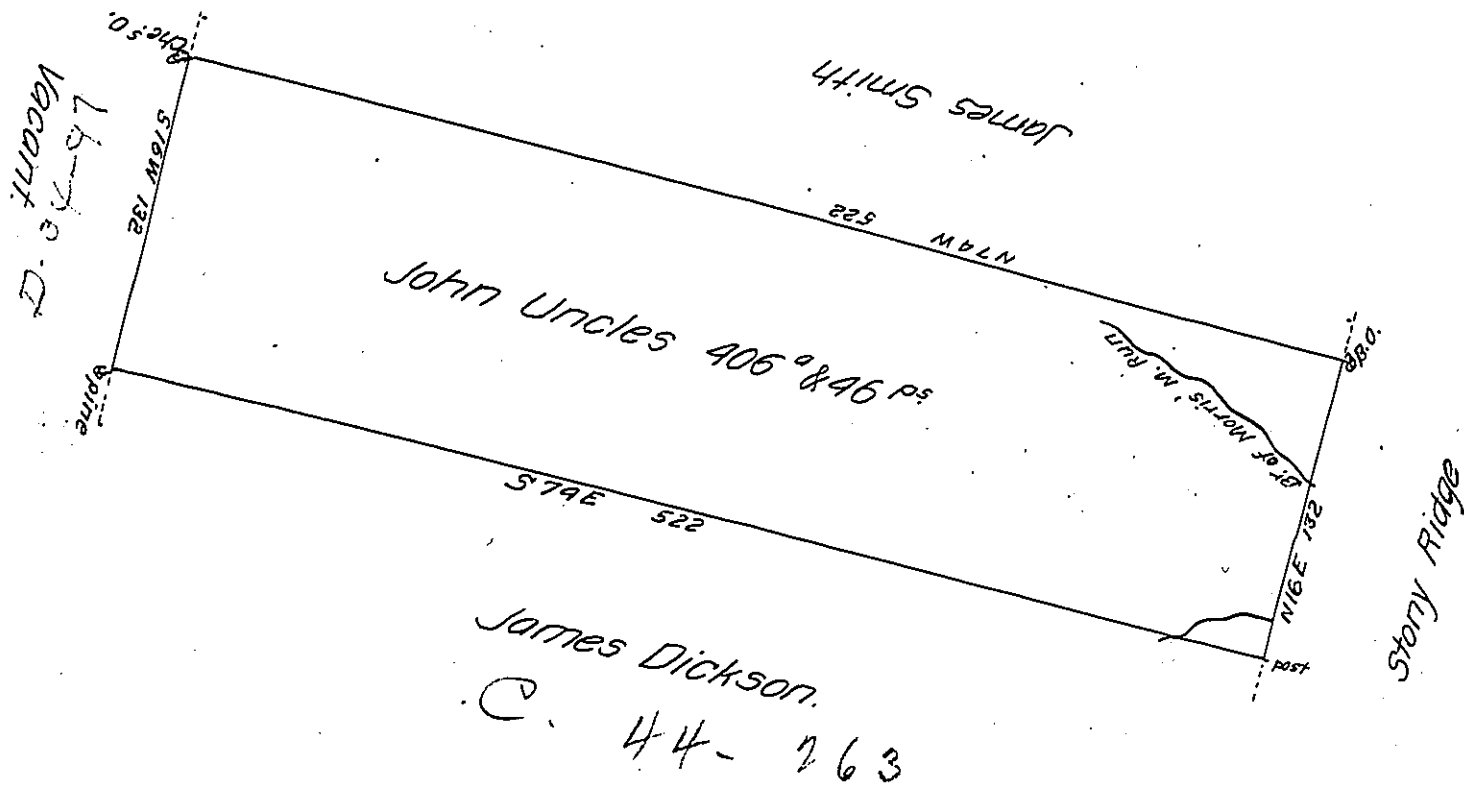 Che.S.O.
James Smith
Vacant
S16W 132
N74W 522
John Uncles 406ª & 46 Ps
Br. of Morris' M. Run
B.O.
pine
S 74E 522
N16E 132
Stony Ridge
post
James Dickson.
C. 44-263